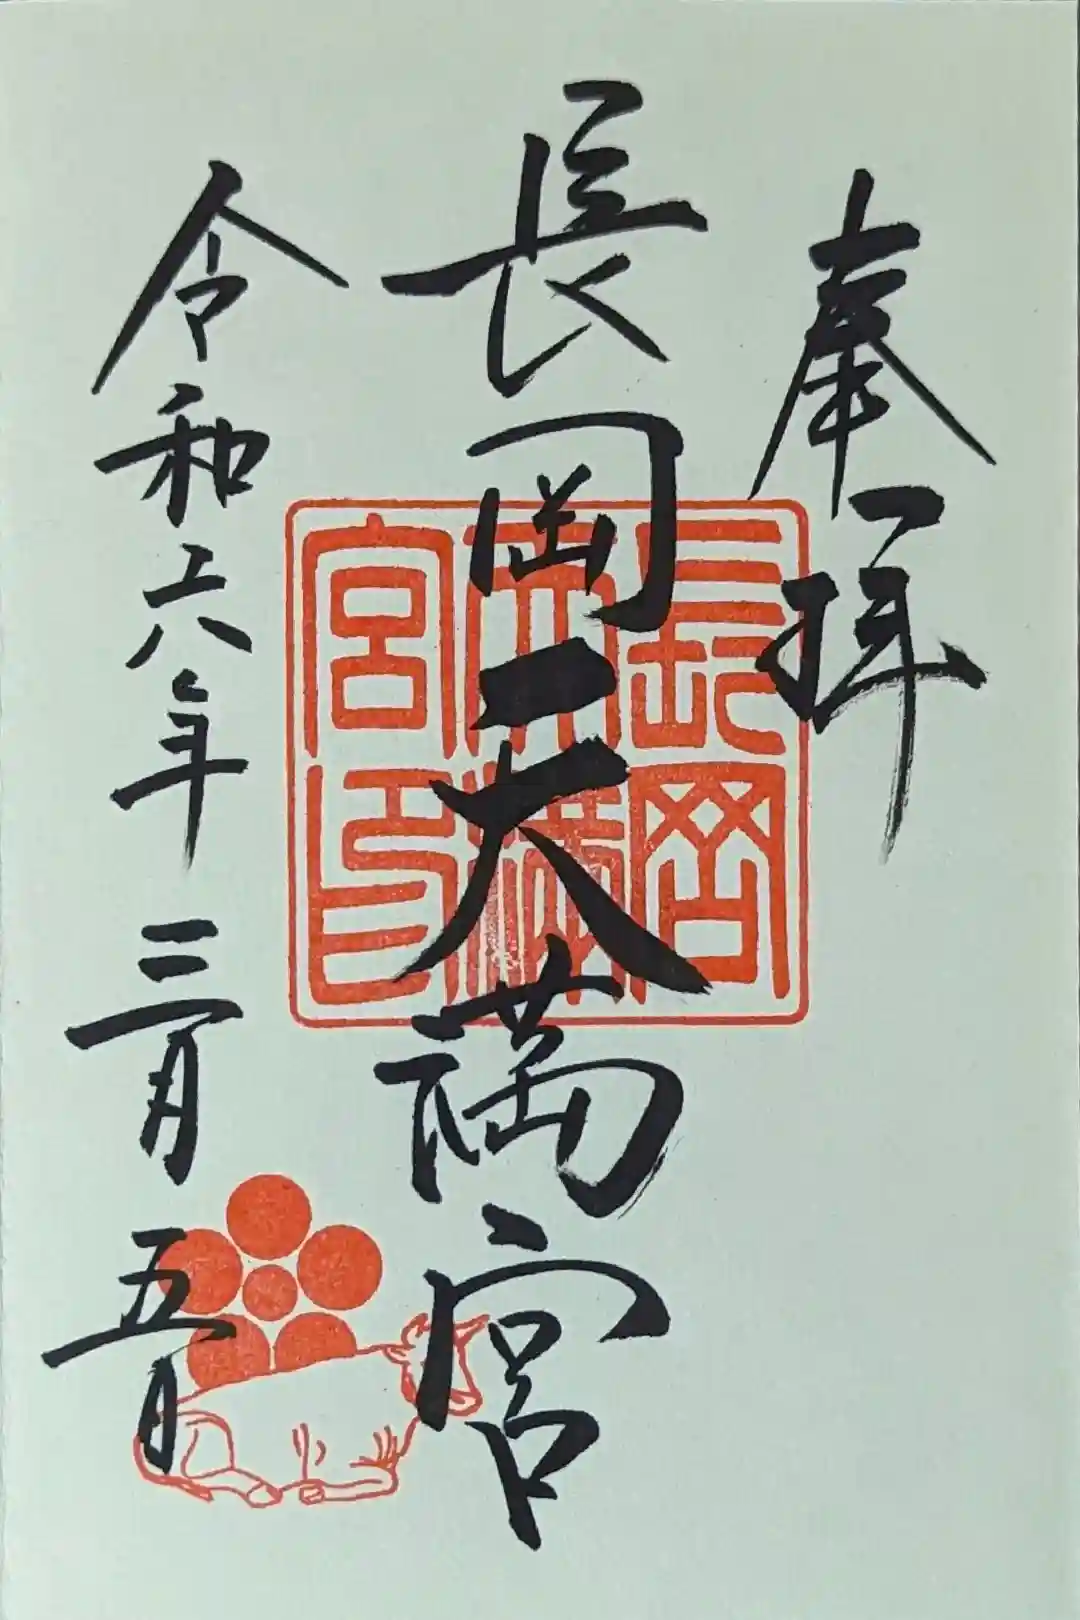 奉拝
長岡天満宮
長岡天満宮印
令和六年三月五日